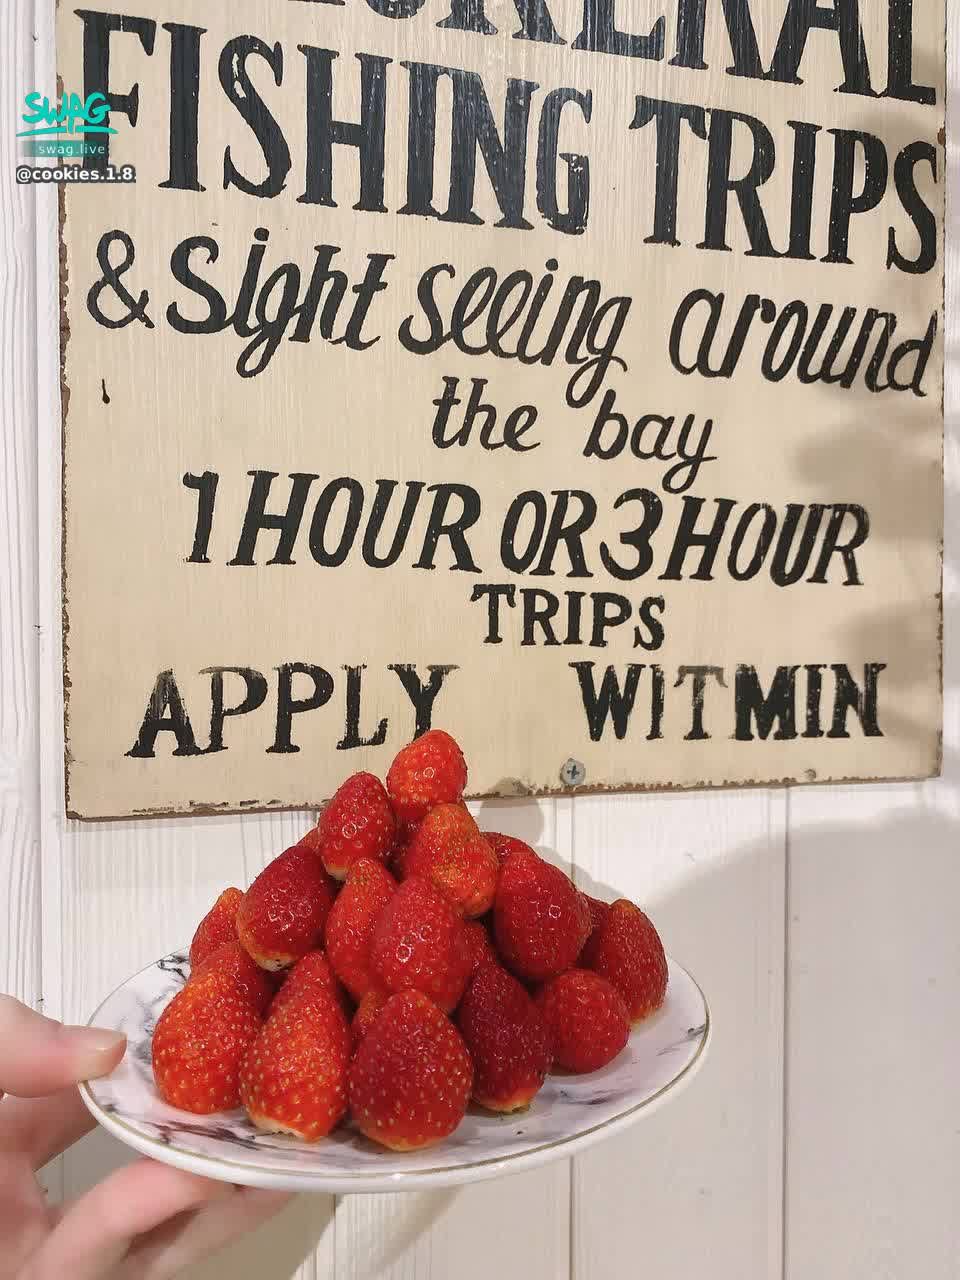 FISHING TRIPS
& Sight seeing around
the bay
1 HOUR OR 3 HOUR
TRIPS
APPLY WITMIN
SWAG
swag.live
@cookies.1.8.